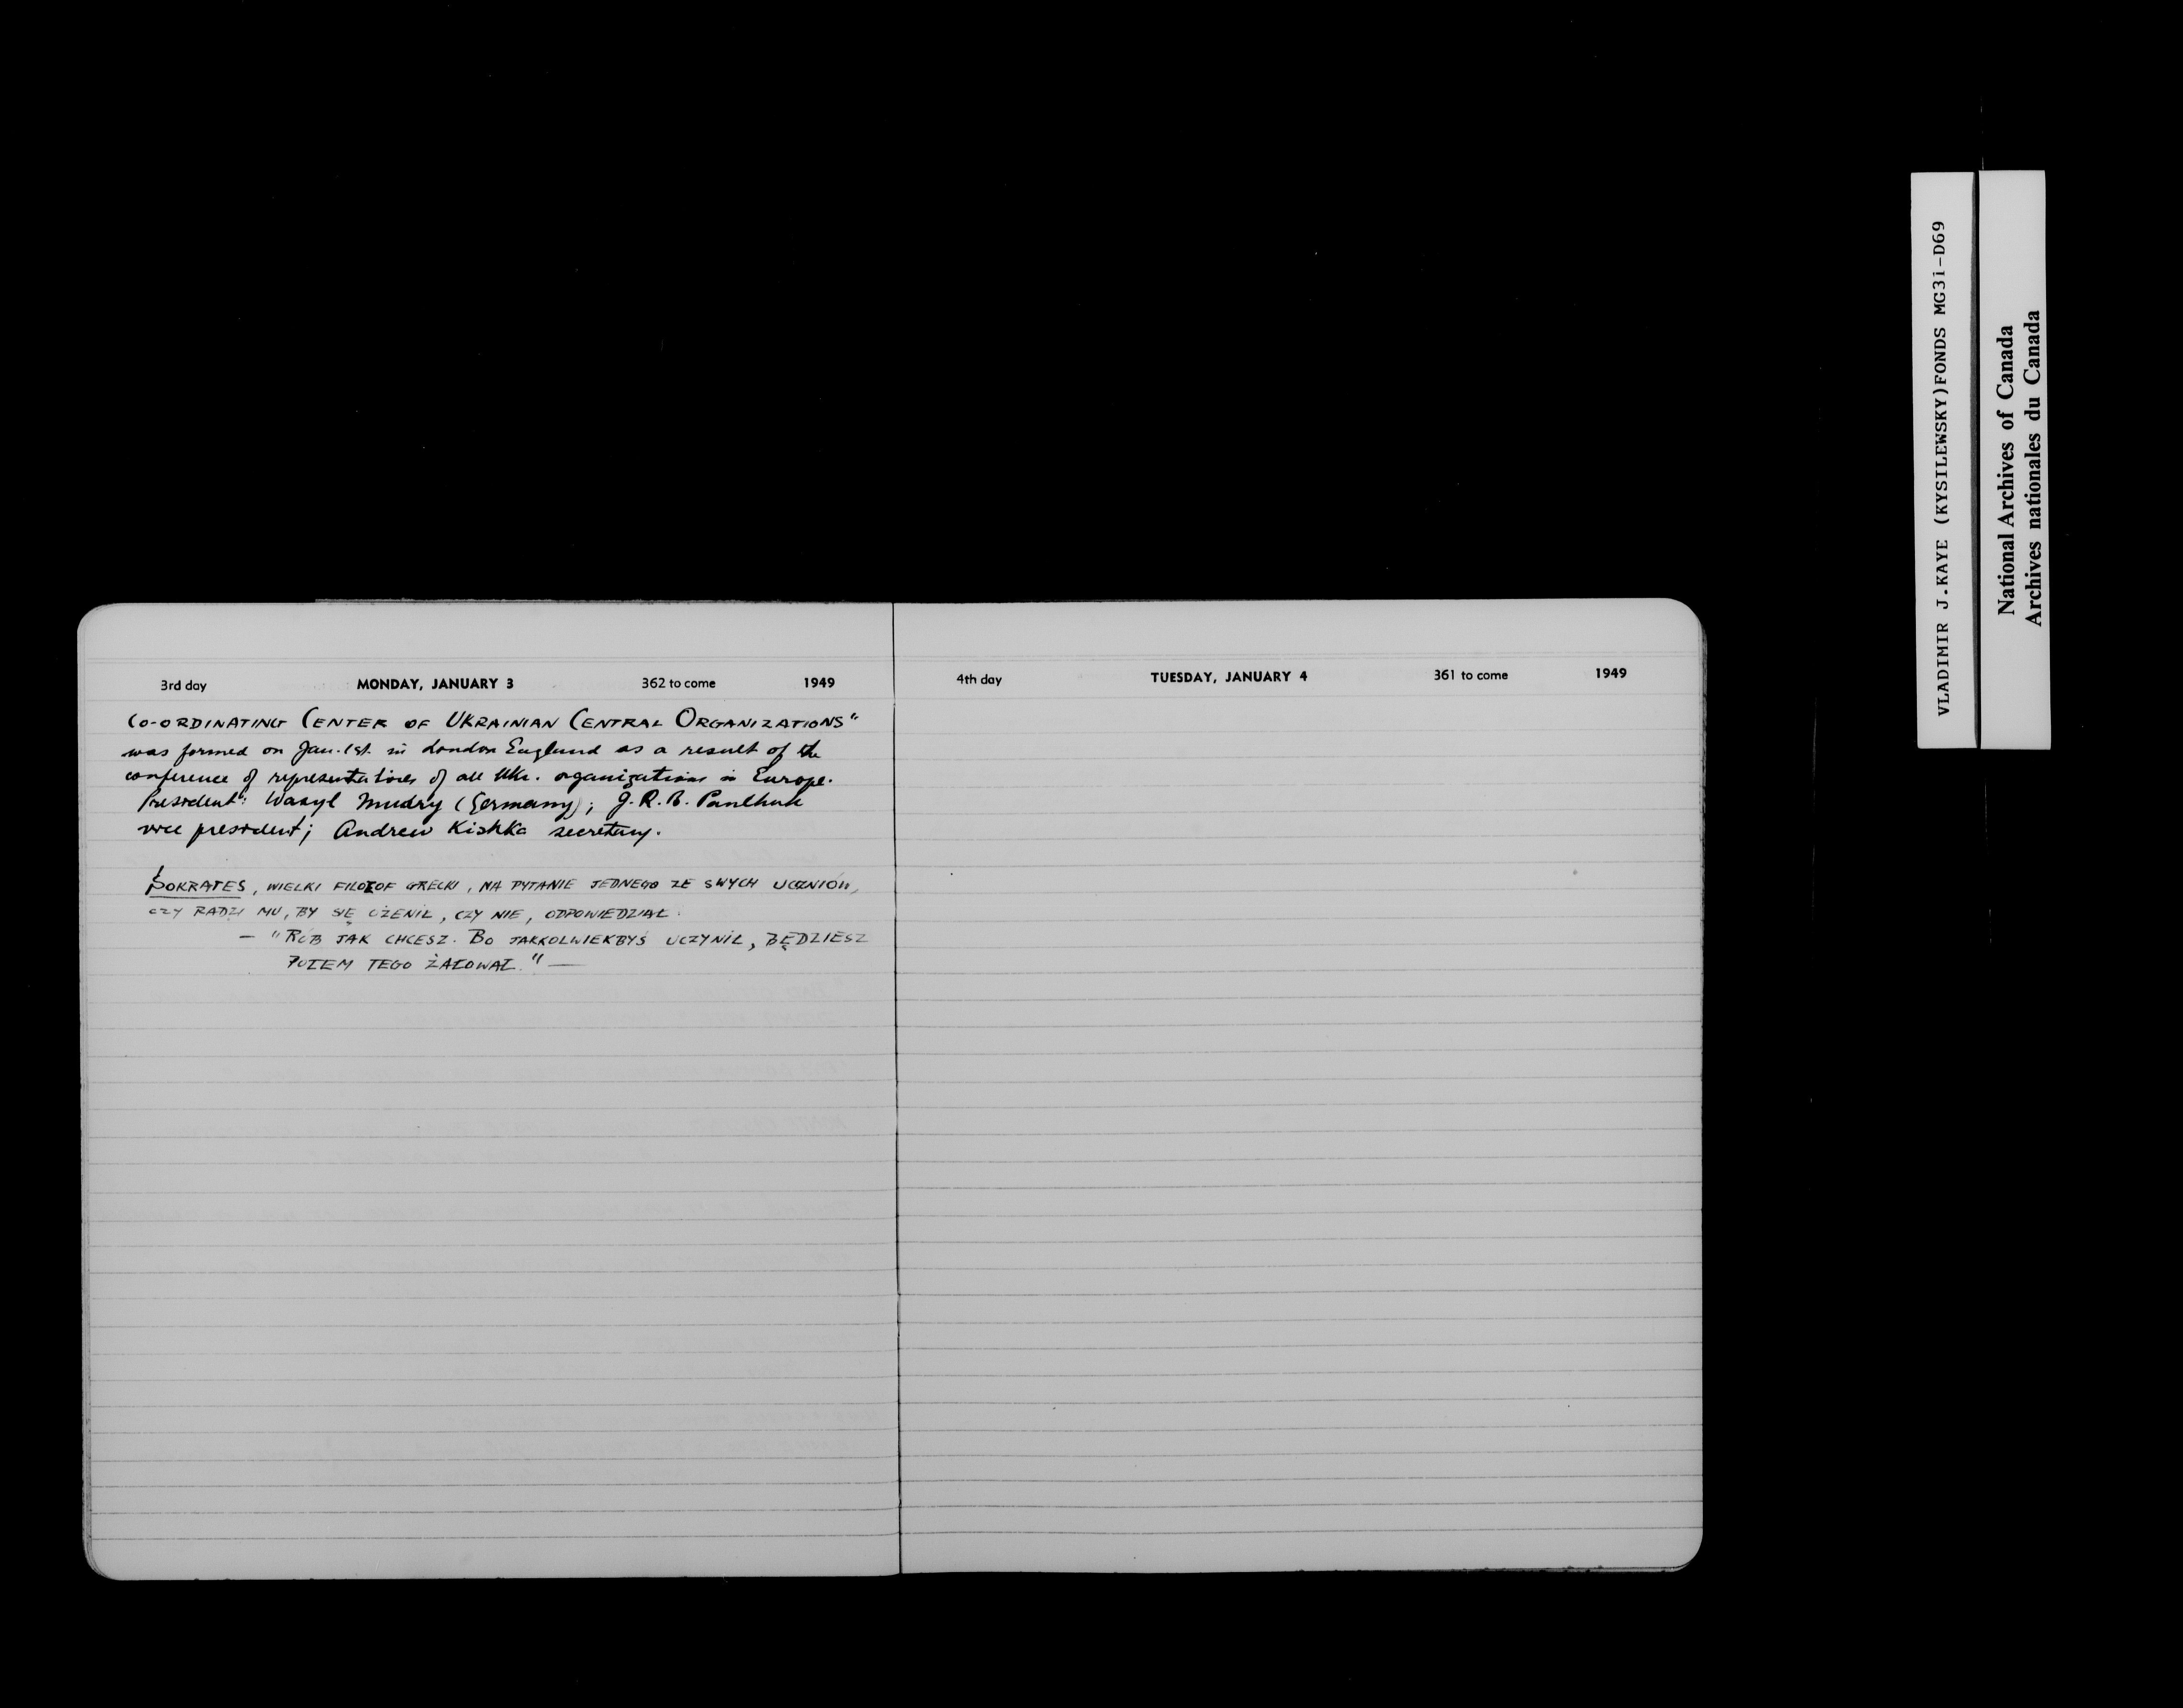 3rd day MONDAY, JANUARY 3 362 to come 1949
CO-ORDINATING CENTER OF UKRAINIAN CENTRAL ORGANIZATIONS"
was formed on Jan. 1st. in London England as a result of the
conference of representatives of all Ukr. organizations in Europe.
President: Wasyl Mudry (Germany); J.R.B. Panchuk
vice president; Andrew Kishka secretary.
SOKRATES, WIELKI FILOZOF GRECKI, NA PYTANIE JEDNEGO ZE SWYCH UCZNIÓW,
CZY RADZI MU, BY SIĘ OŻENIŁ, CZY NIE, ODPOWIEDZIAŁ:
— "RÓB JAK CHCESZ. BO JAKKOLWIEKBYŚ UCZYNIŁ, BĘDZIESZ
POTEM TEGO ŻAŁOWAŁ." —
4th day TUESDAY, JANUARY 4 361 to come 1949
VLADIMIR J.KAYE (KYSILEWSKY)FONDS MG3i-D69
National Archives of Canada
Archives nationales du Canada